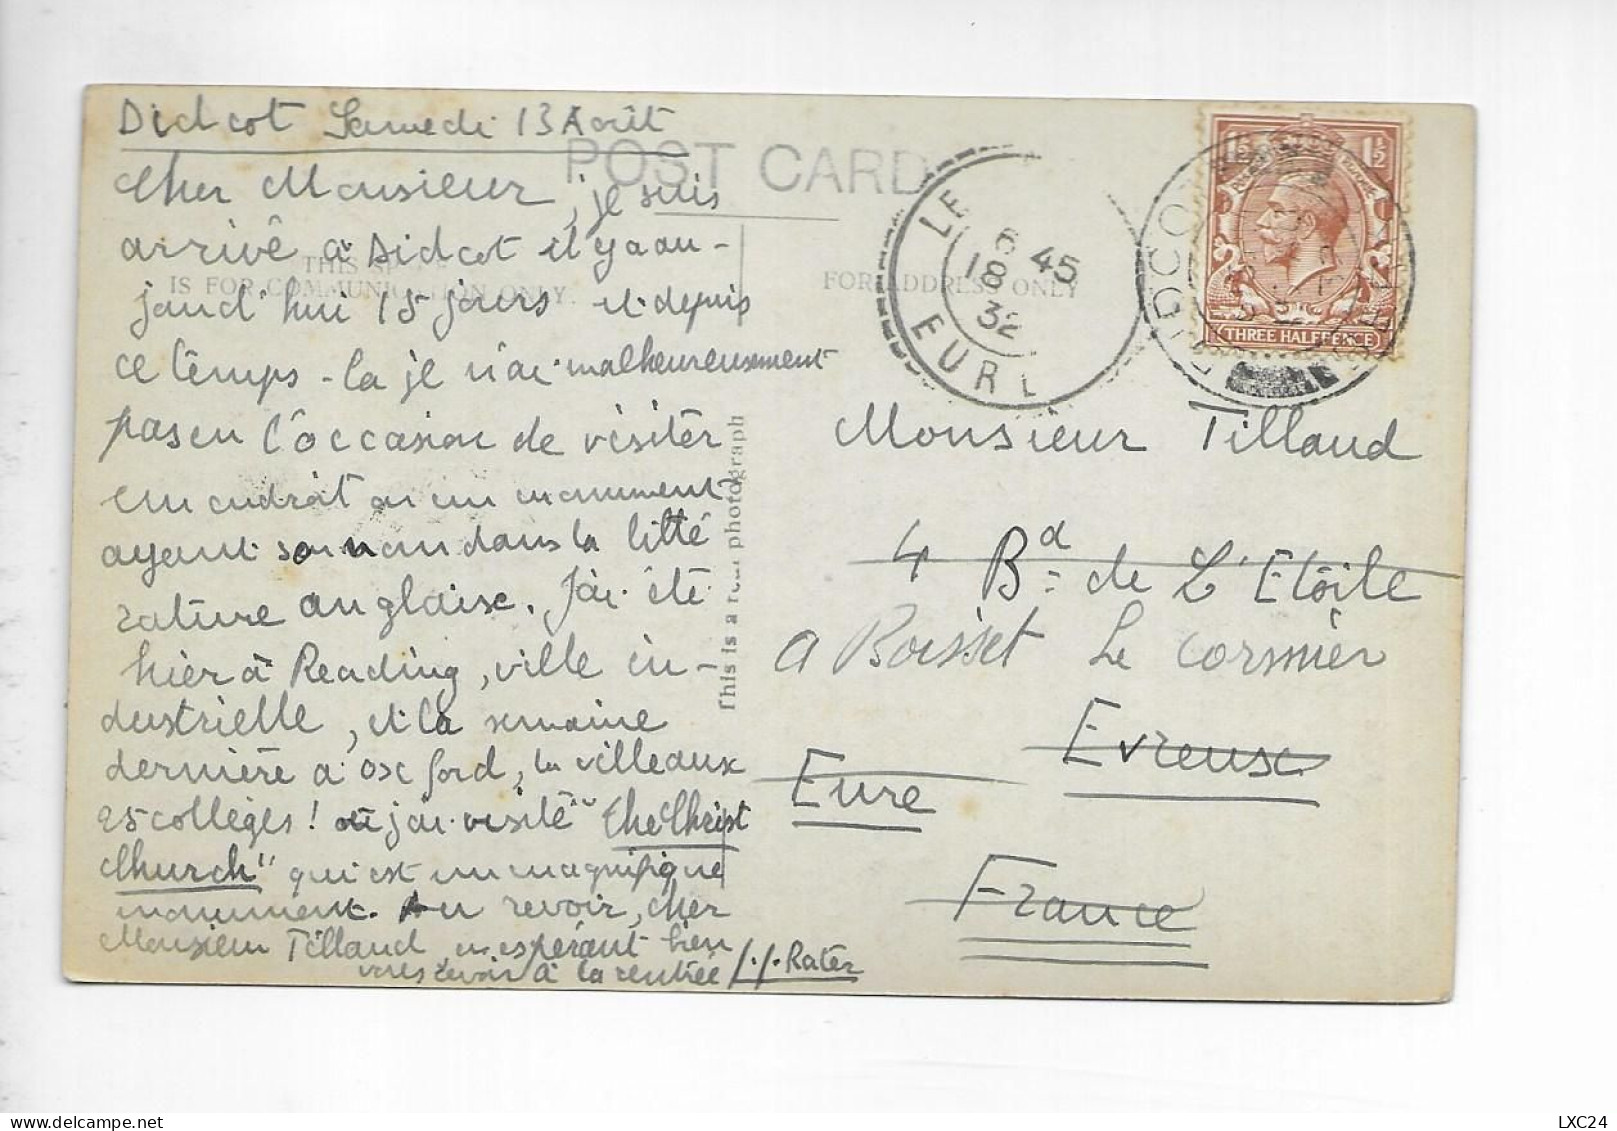 Didcot Samedi 13 Août
POST CARD
Cher Monsieur, je suis
arrivé à Didcot il y a au-
THIS SPACE
IS FOR COMMUNICATION ONLY.
jourd'hui 15 jours et depuis
ce temps-la je n'ai malheureusement
pas eu l'occasion de visiter
un endroit ou un monument
ayant son nom dans la litté
rature anglaise. J'ai été
hier à Reading, ville in-
dustrielle, et la semaine
dernière à Oxford, la ville aux
25 collèges! où j'ai visité "The Christ
Church" qui est un magnifique
monument. Au revoir, cher
Monsieur Tilland, en espérant bien
vous revoir à la rentrée J.J. Rater
This is a real photograph
FOR ADDRESS ONLY
LE
6 45
18 8
32
EURE
DIDCOT
BERKS
THREE HALFPENCE
Monsieur Tilland
4 Bd de L'Etoile
a Boisset Le Cormier
Evreux
Eure
France
LXC24